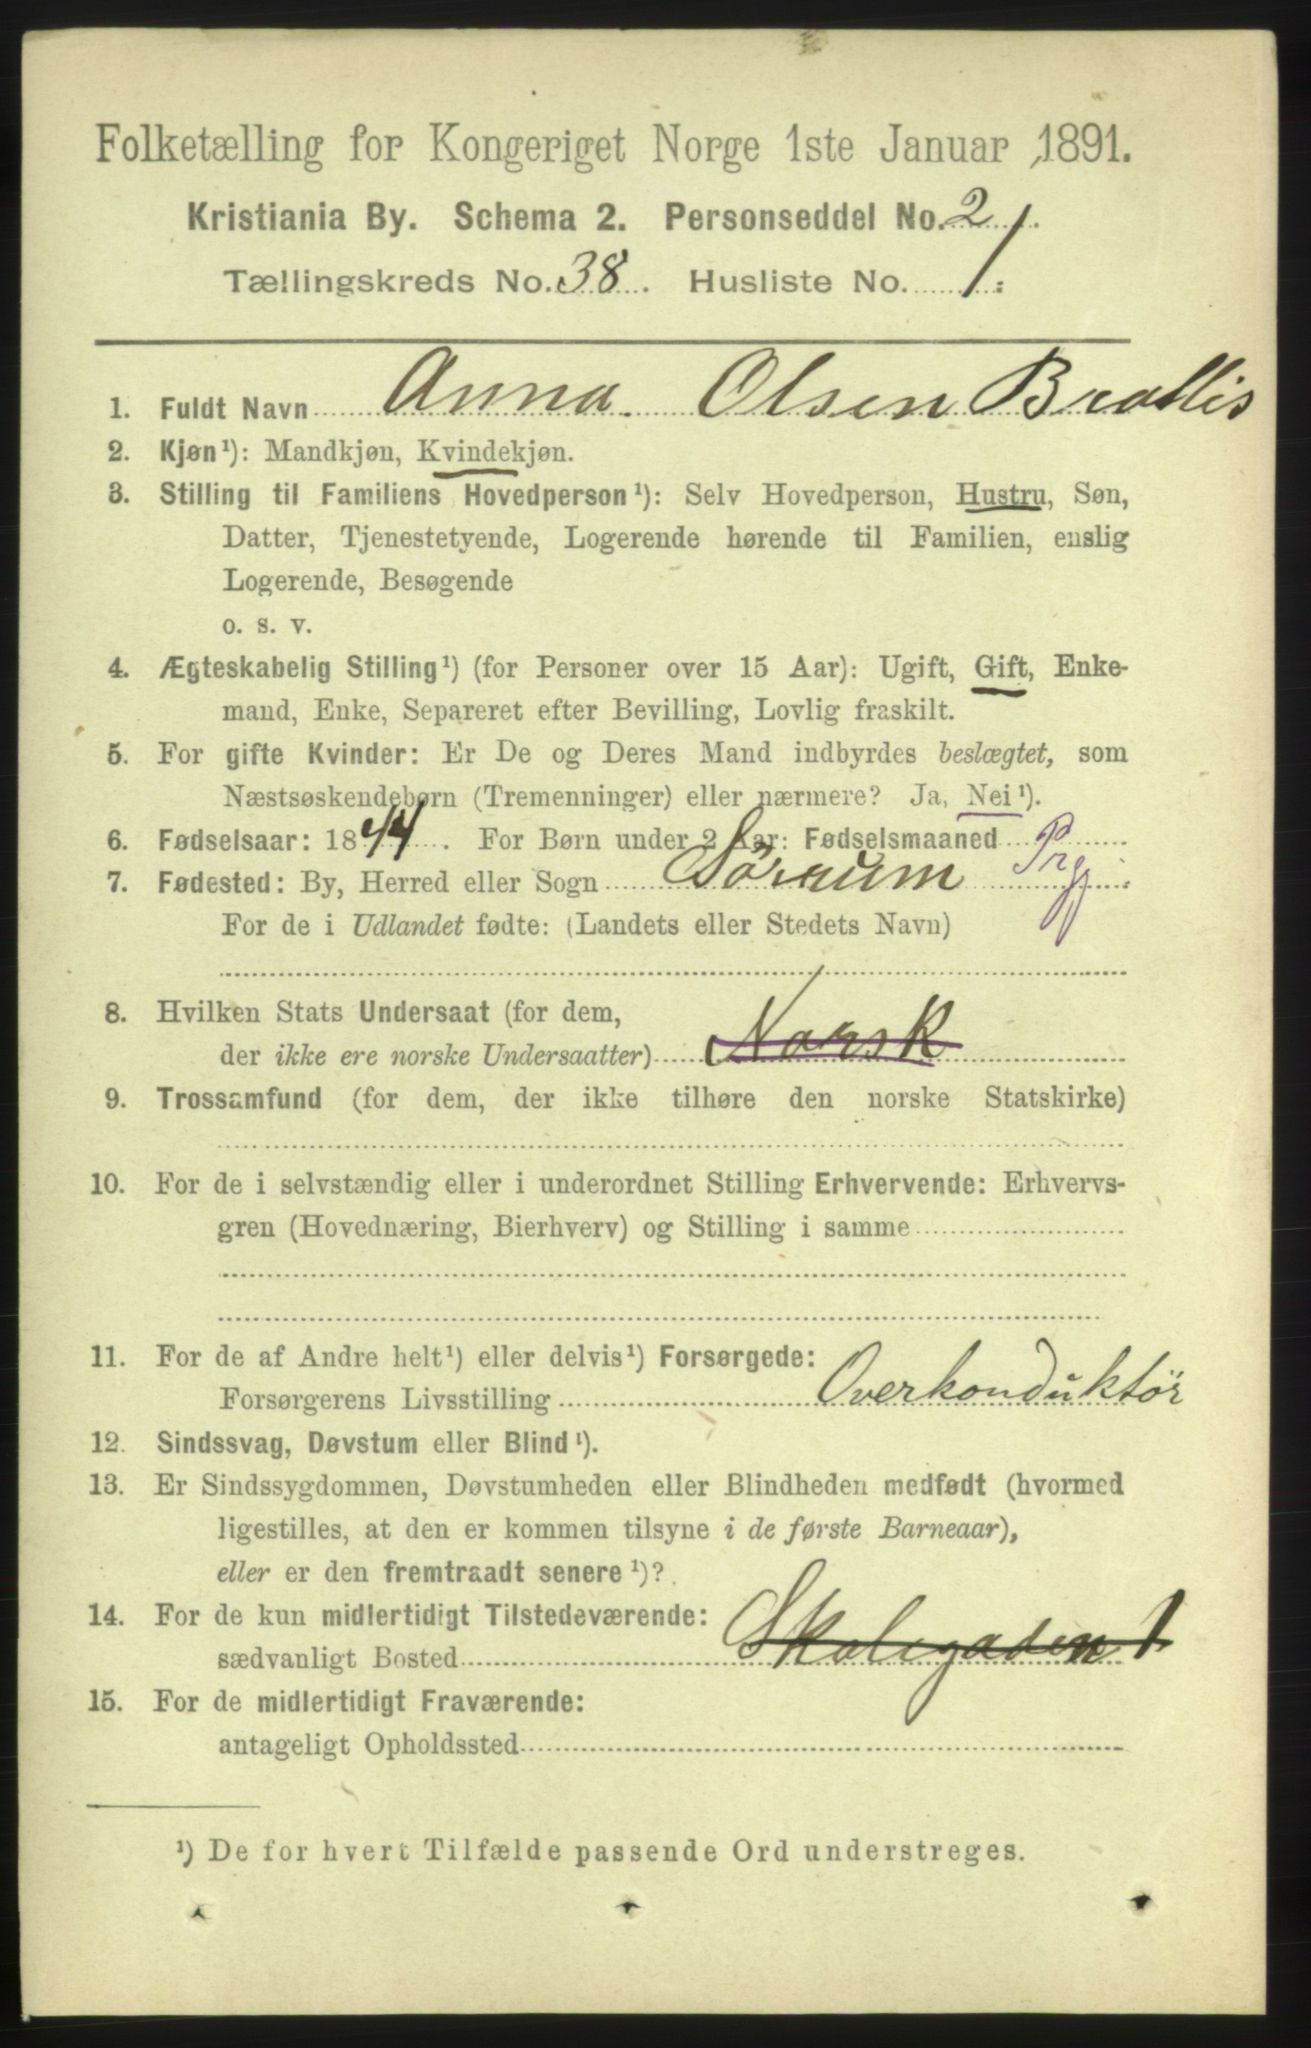 Folketælling for Kongeriget Norge 1ste Januar 1891.
Kristiania By. Schema 2. Personseddel No. 2.
Tællingskreds No. 38. Husliste No. 1.
1. Fuldt Navn Anna Olsen Brattlis
2. Kjøn¹): Mandkjøn, Kvindekjøn.
3. Stilling til Familiens Hovedperson¹): Selv Hovedperson, Hustru, Søn,
Datter, Tjenestetyende, Logerende hørende til Familien, enslig
Logerende, Besøgende
o. s. v.
4. Ægteskabelig Stilling¹) (for Personer over 15 Aar): Ugift, Gift, Enke-
mand, Enke, Separeret efter Bevilling, Lovlig fraskilt.
5. For gifte Kvinder: Er De og Deres Mand indbyrdes beslægtet, som
Næstsøskendebørn (Tremenninger) eller nærmere? Ja, Nei¹).
6. Fødselsaar: 1844. For Børn under 2 Aar: Fødselsmaaned
7. Fødested: By, Herred eller Sogn Sørum Prgj.
For de i Udlandet fødte: (Landets eller Stedets Navn)
8. Hvilken Stats Undersaat (for dem,
der ikke ere norske Undersaatter) Norsk
9. Trossamfund (for dem, der ikke tilhøre den norske Statskirke)
10. For de i selvstændig eller i underordnet Stilling Erhvervende: Erhvervs-
gren (Hovednæring, Bierhverv) og Stilling i samme
11. For de af Andre helt¹) eller delvis¹) Forsørgede:
Forsørgerens Livsstilling Overkonduktör
12. Sindssvag, Døvstum eller Blind¹).
13. Er Sindssygdommen, Døvstumheden eller Blindheden medfødt (hvormed
ligestilles, at den er kommen tilsyne i de første Barneaar),
eller er den fremtraadt senere¹)?
14. For de kun midlertidigt Tilstedeværende:
sædvanligt Bosted Skolegaden 1
15. For de midlertidigt Fraværende:
antageligt Opholdssted
¹) De for hvert Tilfælde passende Ord understreges.